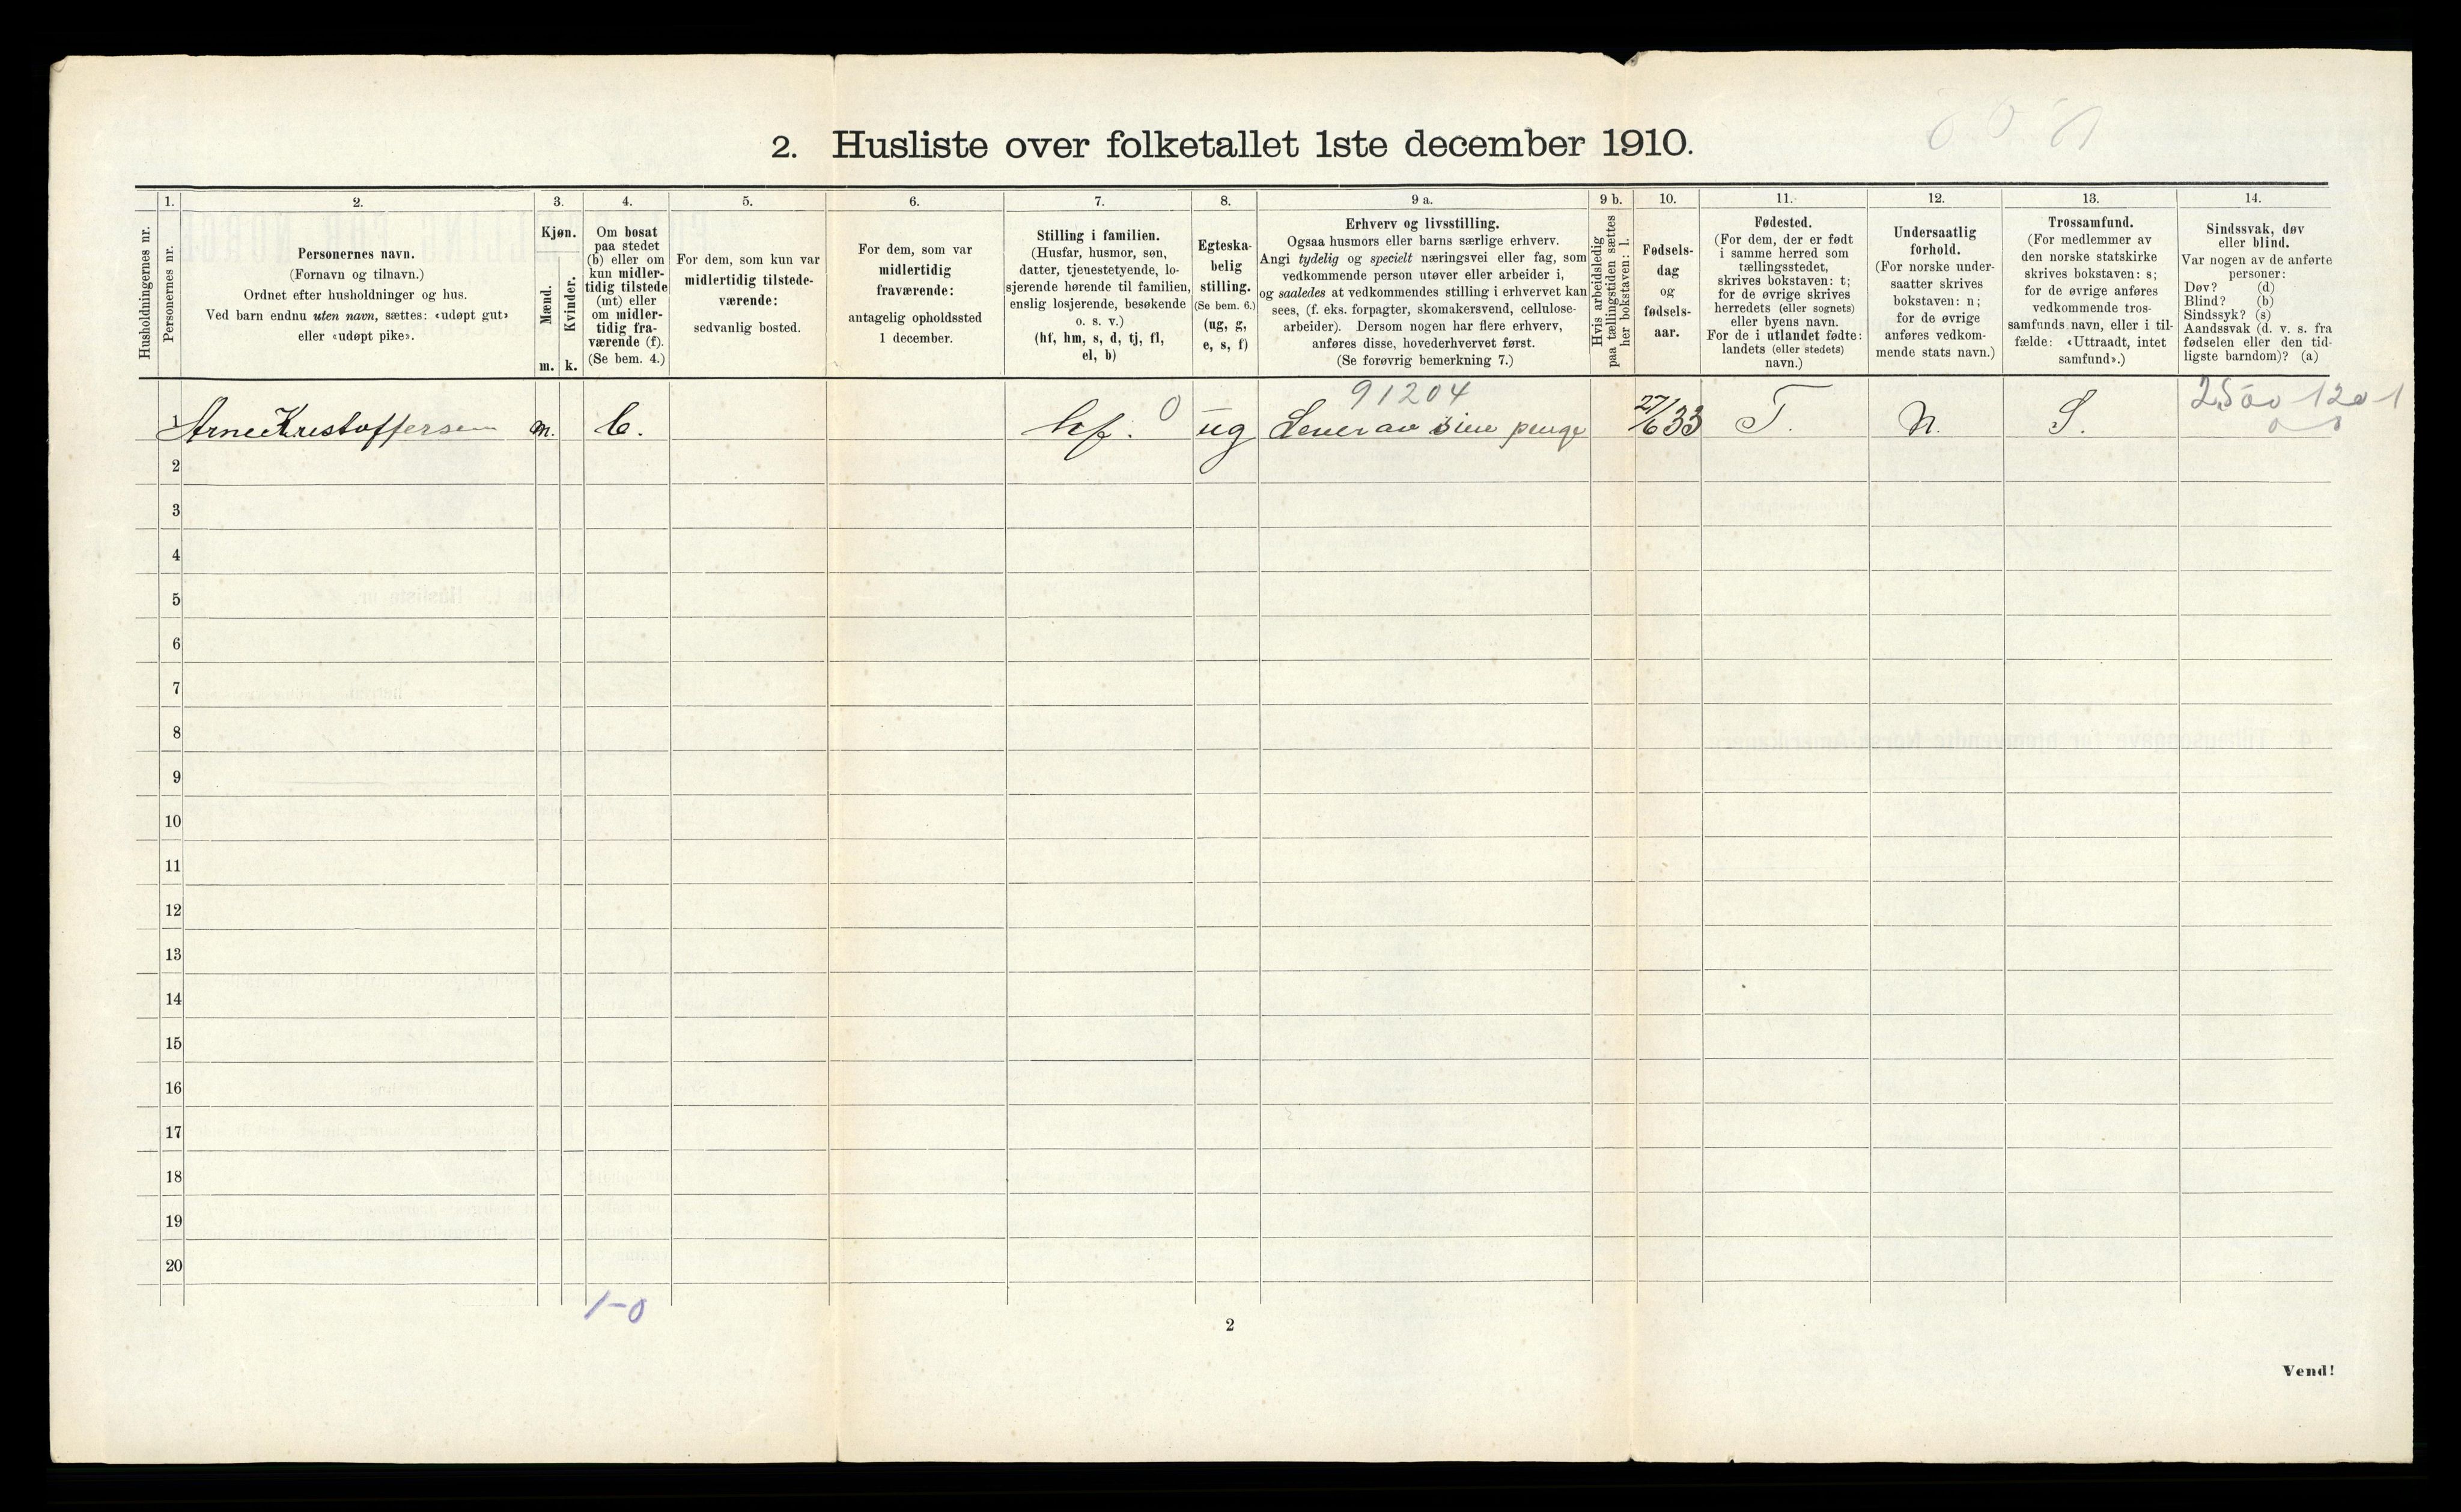 2. Husliste over folketallet 1ste december 1910.
1. 2. 3. 4. 5. 6. 7. 8. 9 a. 9 b. 10. 11. 12. 13. 14.
Husholdningernes nr.
Personernes nr.
Personernes navn.
(Fornavn og tilnavn.)
Ordnet efter husholdninger og hus.
Ved barn endnu uten navn, sættes: «udøpt gut»
eller «udøpt pike».
Kjøn.
Mænd.
m.
Kvinder.
k.
Om bosat
paa stedet
(b) eller om
kun midler-
tidig tilstede
(mt) eller
om midler-
tidig fra-
værende (f).
(Se bem. 4.)
For dem, som kun var
midlertidig tilstede-
værende:
sedvanlig bosted.
For dem, som var
midlertidig
fraværende:
antagelig opholdssted
1 december.
Stilling i familien.
(Husfar, husmor, søn,
datter, tjenestetyende, lo-
sjerende hørende til familien,
enslig losjerende, besøkende
o. s. v.)
(hf, hm, s, d, tj, fl,
el, b)
Egteska-
belig
stilling.
(Se bem. 6.)
(ug, g,
e, s, f)
Erhverv og livsstilling.
Ogsaa husmors eller barns særlige erhverv.
Angi tydelig og specielt næringsvei eller fag, som
vedkommende person utøver eller arbeider i,
og saaledes at vedkommendes stilling i erhvervet kan
sees, (f. eks. forpagter, skomakersvend, cellulose-
arbeider). Dersom nogen har flere erhverv,
anføres disse, hovederhvervet først.
(Se forøvrig bemerkning 7.)
Hvis arbeidsledig
paa tællingstiden sættes
her bokstaven: l.
Fødsels-
dag
og
fødsels-
aar.
Fødested.
(For dem, der er født
i samme herred som
tællingsstedet,
skrives bokstaven: t;
for de øvrige skrives
herredets (eller sognets)
eller byens navn.
For de i utlandet fødte:
landets (eller stedets)
navn.)
Undersaatlig
forhold.
(For norske under-
saatter skrives
bokstaven: n;
for de øvrige
anføres vedkom-
mende stats navn.)
Trossamfund.
(For medlemmer av
den norske statskirke
skrives bokstaven: s;
for de øvrige anføres
vedkommende tros-
samfunds navn, eller i til-
fælde: «Uttraadt, intet
samfund».)
Sindssvak, døv
eller blind.
Var nogen av de anførte
personer:
Døv? (d)
Blind? (b)
Sindssyk? (s)
Aandssvak (d. v. s. fra
fødselen eller den tid-
ligste barndom)? (a)
91204
1 Arne Kristoffersen m. b. hf. 0 ug Lever av sine penge 27/6 33 T. N. S.
2
3
4
5
6
7
8
9
10
11
12
13
14
15
16
17
18
19
20
1-0
2
Vend!